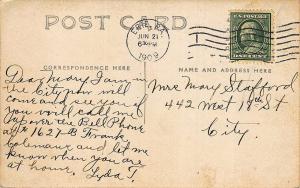 POST CARD
ERIE, PA.
JUN 21
6 PM
1909
CORRESPONDENCE HERE
NAME AND ADDRESS HERE
Dear Mary I am in
the City now will
come and see you if
you will call me
up over the Bell Phone
1627-B Frank
Colemans and let me
know when you are
at home. Lyda T.
Mrs Mary Stafford
442 West 18th St
City.